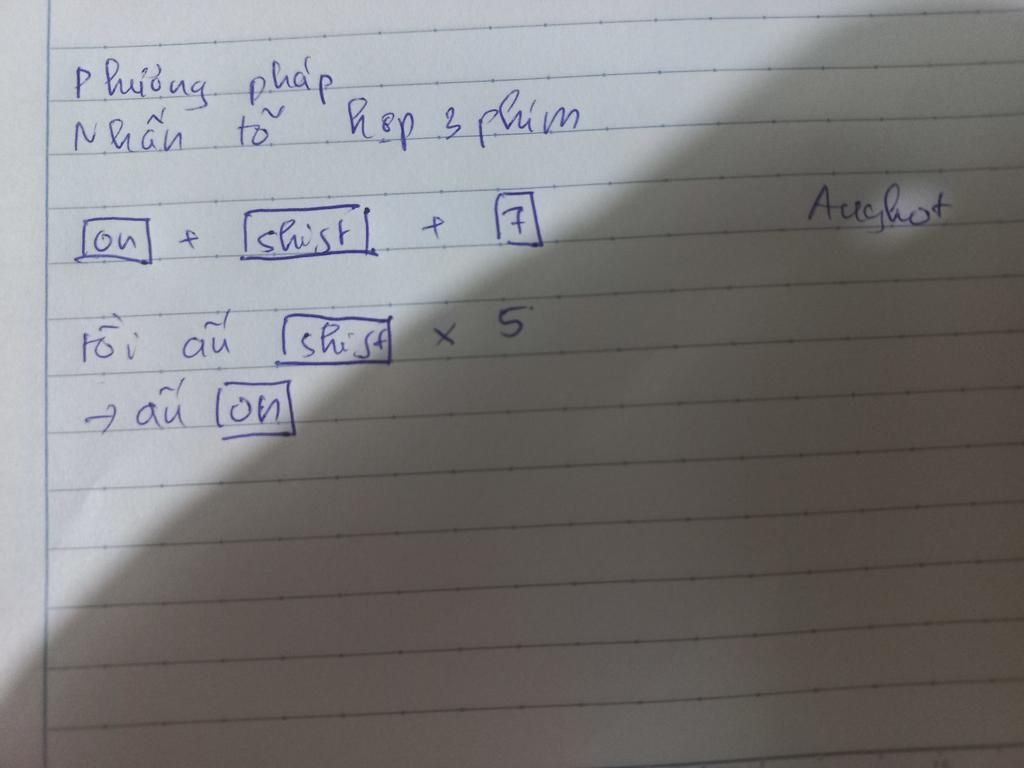 Phương pháp
Nhấn tổ hợp 3 phím
on + shift + 7
rồi ấn shift x 5
→ ấn on